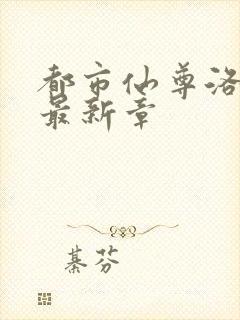 都市仙尊洛
最新章
綦芬